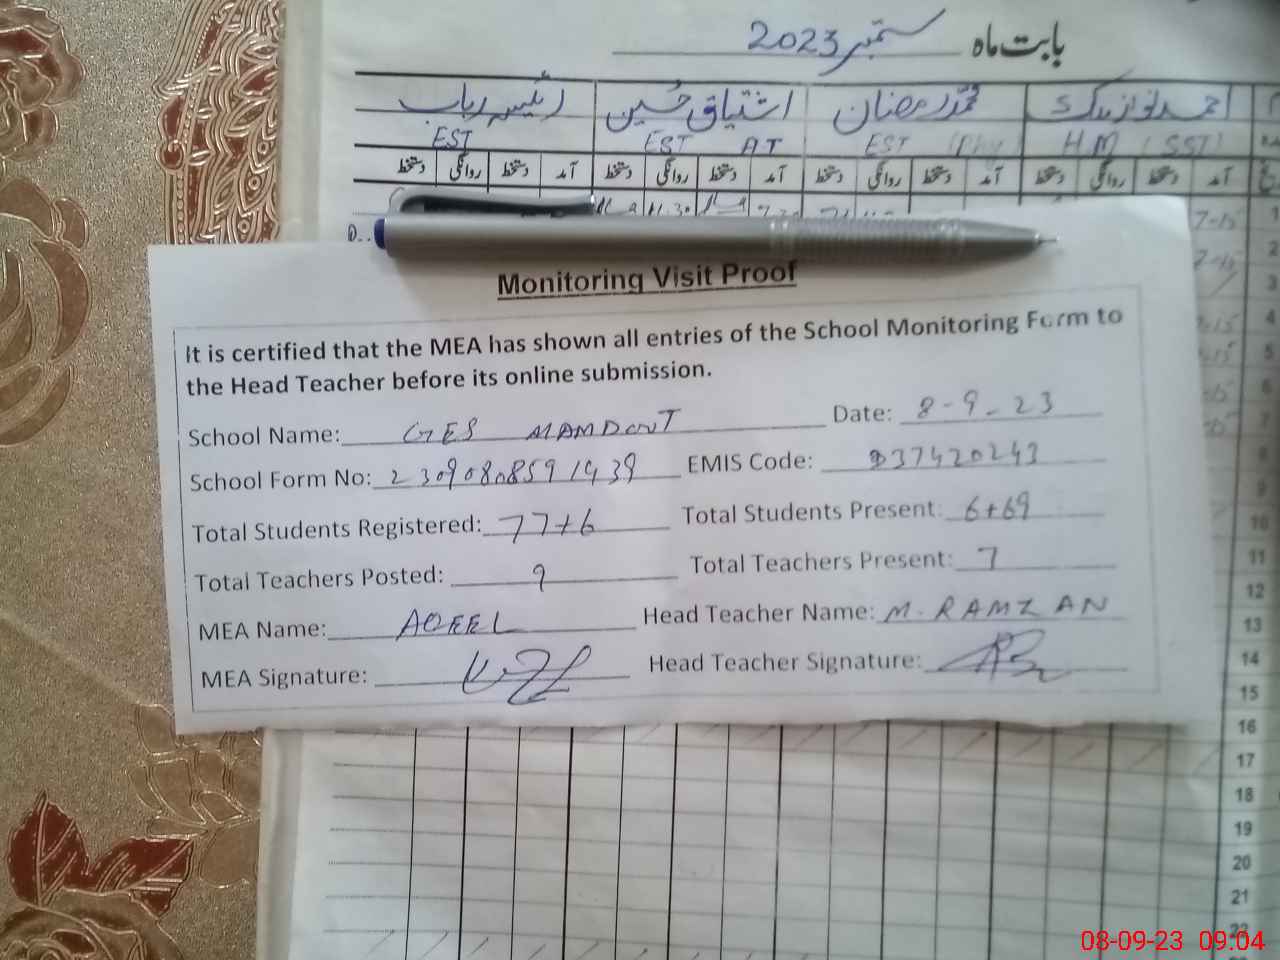 بابت ماہ ستمبر 2023
احمد نواز محمد رمضان اشتیاق حسین رئیس رباب
HM (SST) EST (Phy) EST AT EST
آمد دستخط روانگی دستخط آمد دستخط روانگی دستخط آمد دستخط روانگی دستخط آمد دستخط روانگی دستخط
1
7-15
2
3
4
5
6
7
8
9
10
11
12
13
14
15
16
17
18
19
20
21
22
Monitoring Visit Proof
It is certified that the MEA has shown all entries of the School Monitoring Form to
the Head Teacher before its online submission.
School Name: GES MAMDOT Date: 8-9-23
School Form No: 2309080859 1439 EMIS Code: 37420243
Total Students Registered: 77+6 Total Students Present: 6+69
Total Teachers Posted: 9 Total Teachers Present: 7
MEA Name: AQEEL Head Teacher Name: M. RAMZAN
MEA Signature: Head Teacher Signature:
08-09-23 09:04